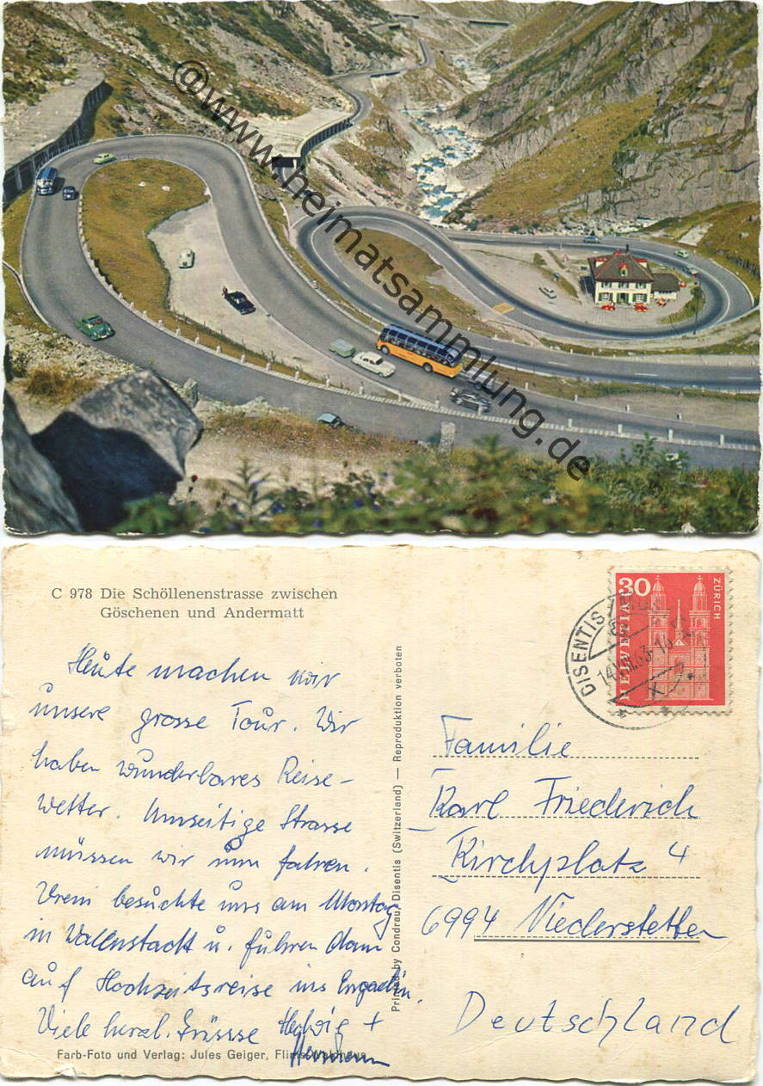 @www.heimatsammlung.de
C 978 Die Schöllenenstrasse zwischen
Göschenen und Andermatt
Heute machen wir
unsere grosse Tour. Wir
haben wunderbares Reise-
wetter. Umseitige Strasse
müssen wir nun fahren.
Vreni besuchte uns am Montag
in Wallenstadt u. führen dann
auf Hochzeitsreise ins Engadin.
Viele herzl. Grüsse Hedwig +
Hermann
Farb-Foto und Verlag: Jules Geiger, Flims-Waldhaus
Printed by Condrau, Disentis (Switzerland) — Reproduktion verboten
30
HELVETIA
ZÜRICH
DISENTIS
Familie
Karl Friederich
Kirchplatz 4
6994 Niederstetten
Deutschland